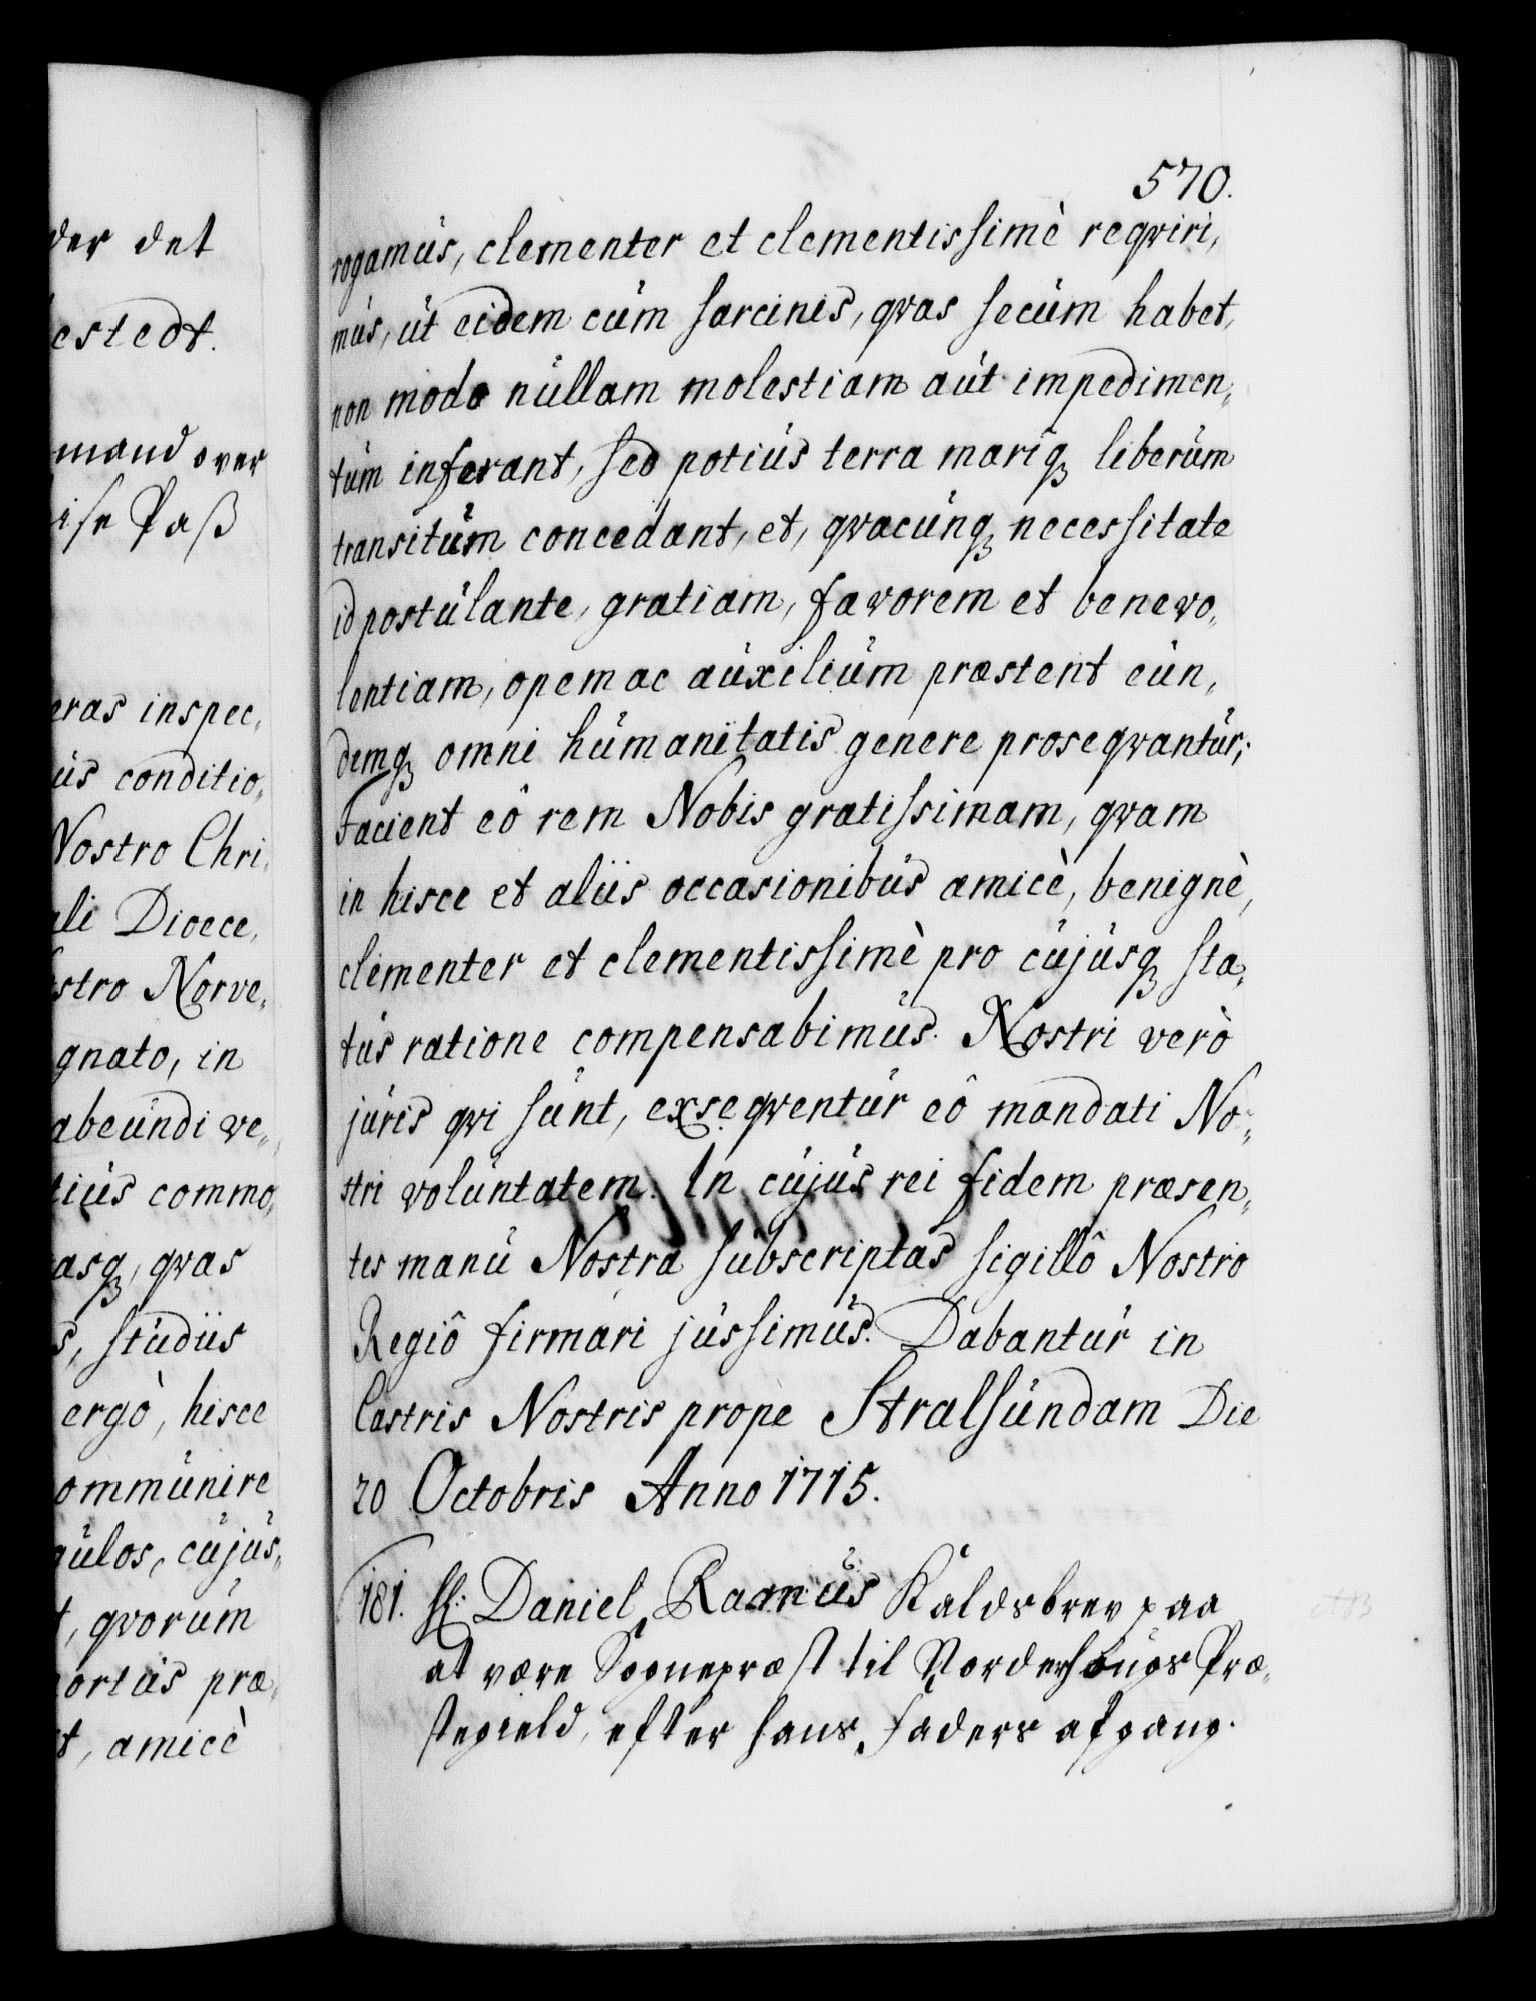 der det
estedt.
mand over
ise Paß
eras inspec,
us conditio,
Nostro Chri,
ali Dioece,
stro Norve,
gnato, in
abeundi ve,
tius commo,
asq, qvas
s, studiis
ergò, hisce
ommunire
gulos, cujus,
t, qvorum
portus præ,
t, amicè
570.
rogamus, clementer et clementissimè reqviri,
mus, ut eidem cum sarcinis, qvas secum habet,
non modo nullam molestiam aut impedimen,
tum inferant, sed potius terra mariq, liberum
transitum concedant, et, qvacunq, necessitate
id postulante, gratiam, favorem et benevo,
lentiam, opem ac auxilium præstent eun,
demq, omni humanitatis genere proseqvantur;
Facient eô rem Nobis gratissimam, qvam
in hisce et aliis occasionibus amicè, benignè,
clementer et clementissimè pro cujusq, sta,
tus ratione compensabimus. Nostri verò
juris qvi sunt, exseqventur eô mandati No,
stri voluntatem. In cujus rei fidem præsen,
tes manu Nostra subscriptas sigillô Nostro
Regiô firmari jussimus. Dabantur in
Castris Nostris prope Stralsundam Die
20 Octobris Anno 1715.
181. Hr: Daniel Ramus Kaldsbrev paa
at være Sognepræst til Norderhougs Præ,
stegield, efter hans Faders afgang.